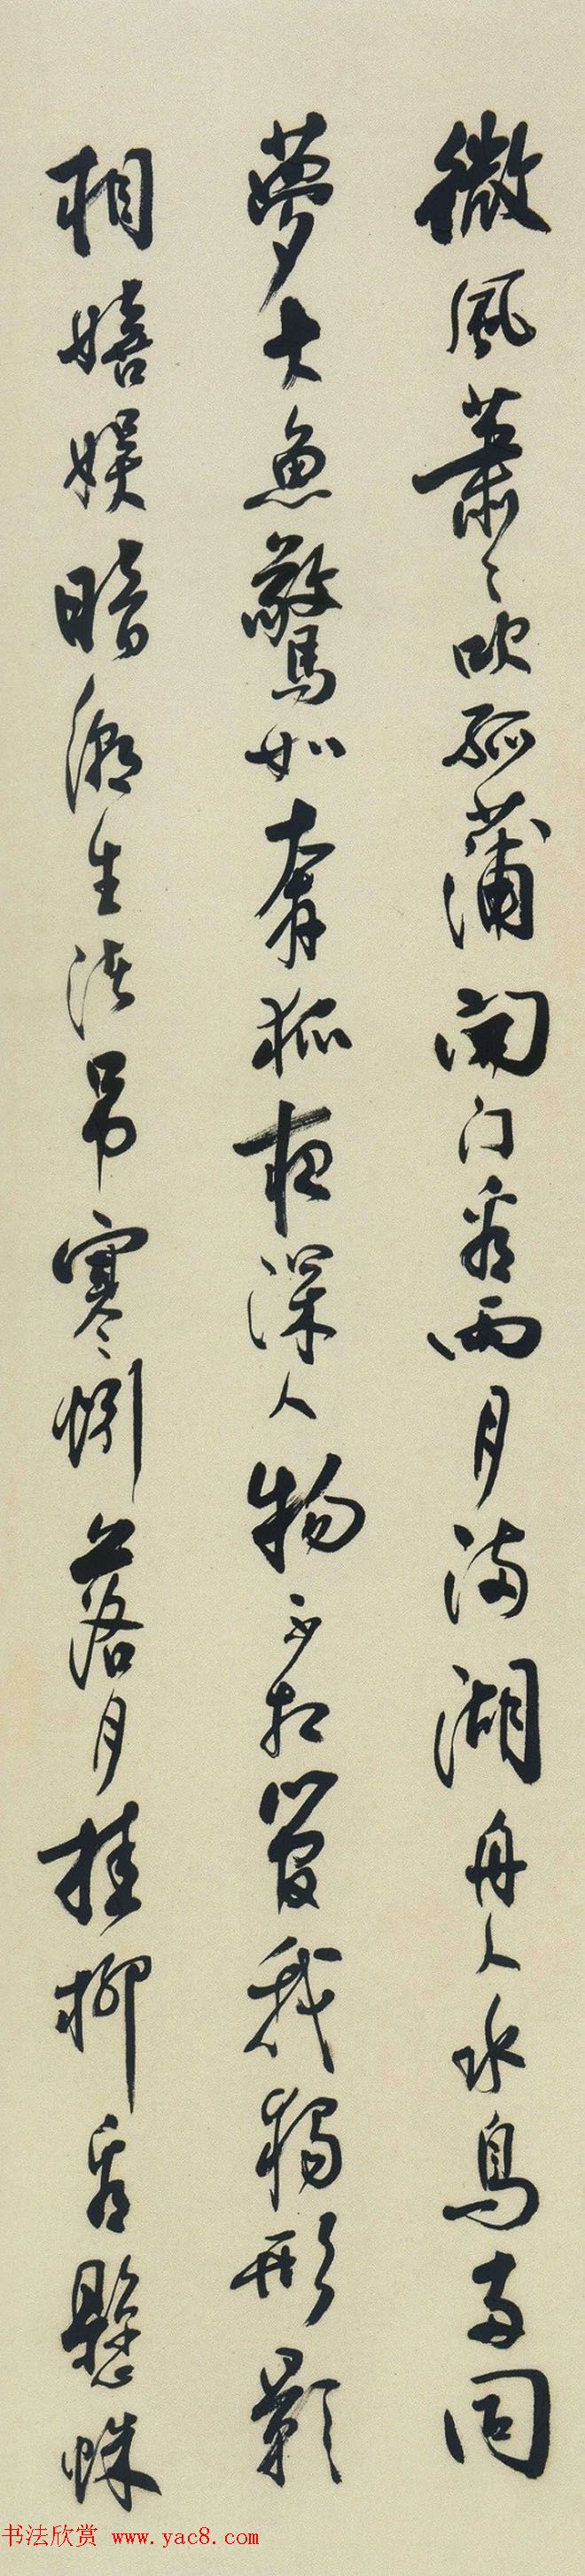 微風蕭〻吹孤蒲開门看雨月滿湖舟人水鳥兩同
夢大魚驚如奔狐夜深人物不相管我獨形影
相嬉娛暗潮生渚吊寒蚓落月挂柳看懸蛛
书法欣赏 www.yac8.com